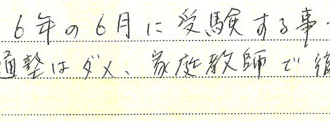 6年の6月に受験する事
塾はダメ、家庭教師で